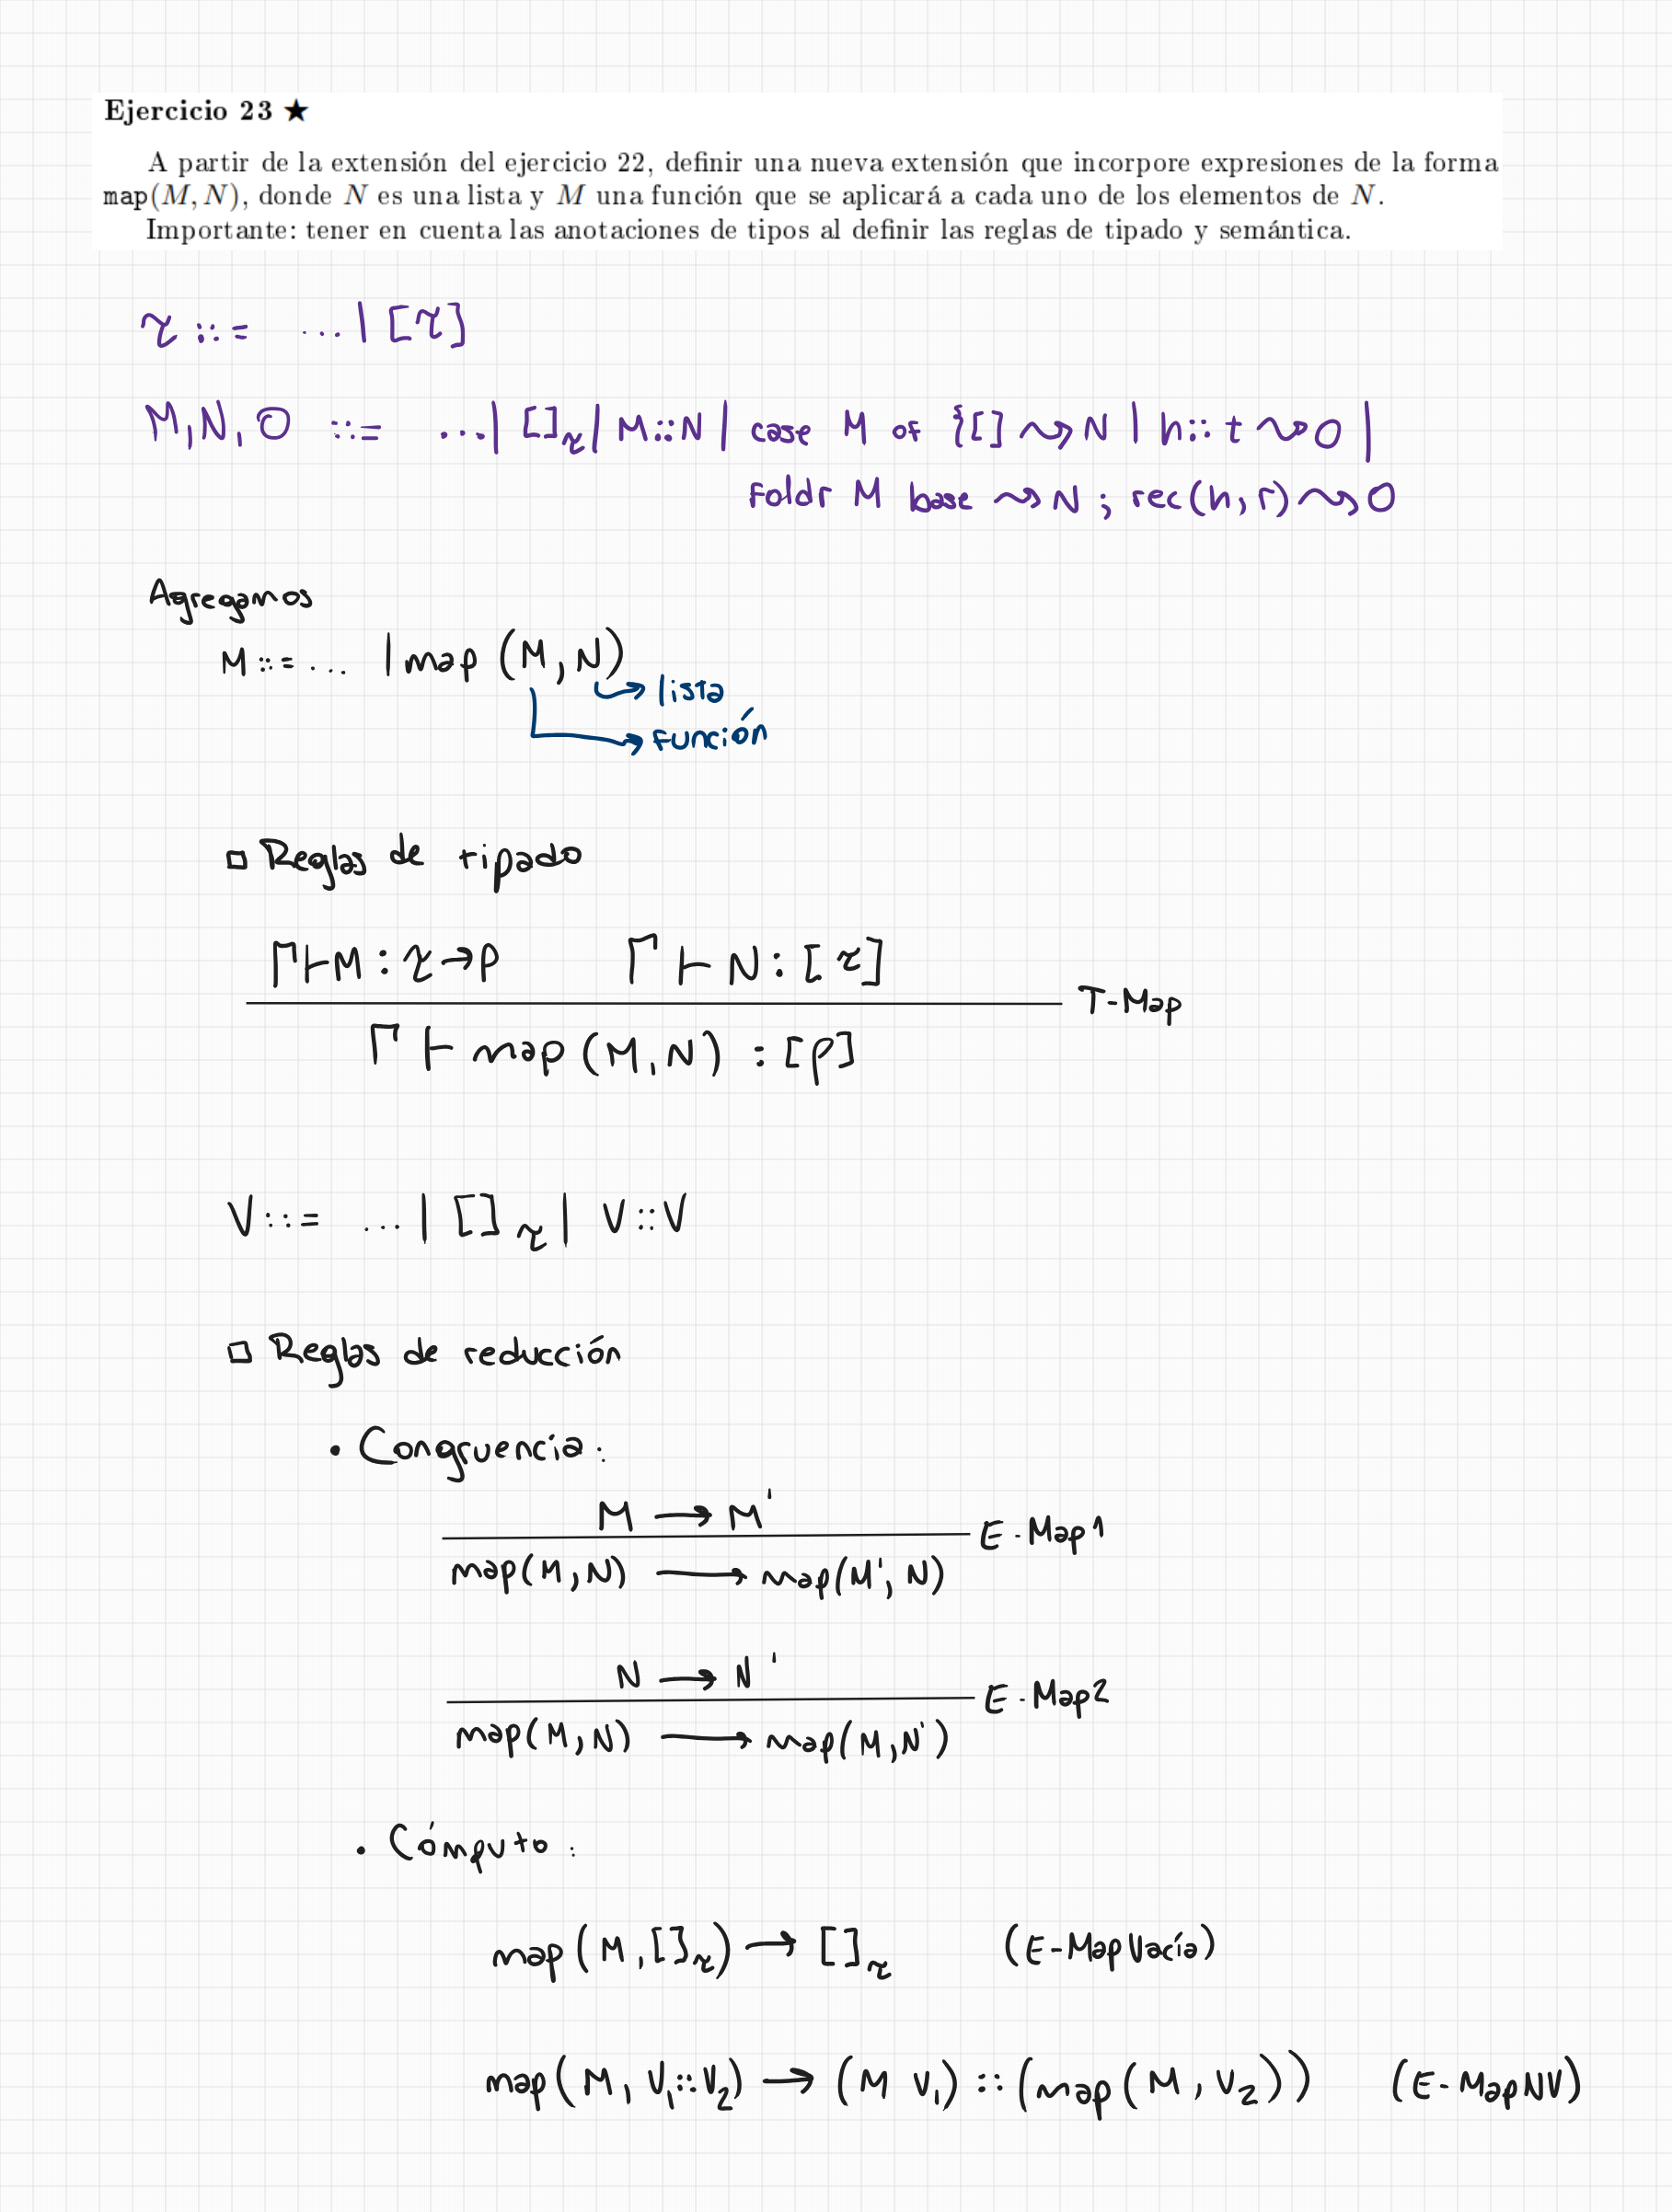 Ejercicio 23 ★
A partir de la extensión del ejercicio 22, definir una nueva extensión que incorpore expresiones de la forma
map(M, N), donde N es una lista y M una función que se aplicará a cada uno de los elementos de N.
Importante: tener en cuenta las anotaciones de tipos al definir las reglas de tipado y semántica.
τ ::= ... | [τ]
M, N, O ::= ... | []τ | M::N | case M of {[] ⇝ N | h::t ⇝ O |
foldr M base ⇝ N ; rec(h, r) ⇝ O
Agregamos
M ::= ... | map (M, N)
→ lista
→ función
□ Reglas de tipado
Γ ⊢ M : τ → ρ Γ ⊢ N : [τ]
T-Map
Γ ⊢ map (M, N) : [ρ]
V ::= ... | []τ | V::V
□ Reglas de reducción
• Congruencia:
M → M'
E-Map1
map(M, N) → map(M', N)
N → N'
E-Map2
map(M, N) → map(M, N')
• Cómputo:
map(M, []τ) → []τ (E-MapVacía)
map(M, V₁::V₂) → (M V₁) :: (map(M, V₂)) (E-MapNV)